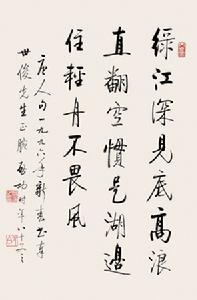 绿江深见底高浪
直翻空惯是湖边
住轻舟不畏风
唐人句一九九六年新春书奉
世俊先生正腕启功时年八十又三